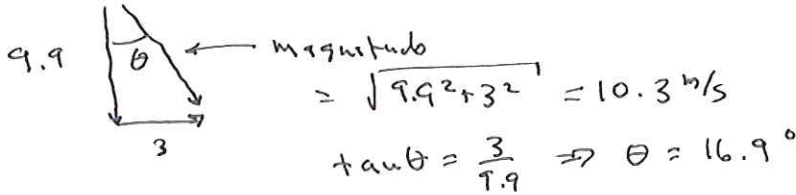 9.9 θ ← magnitude
= √9.9²+3² = 10.3 m/s
3
tanθ = 3/9.9 ⇒ θ = 16.9°